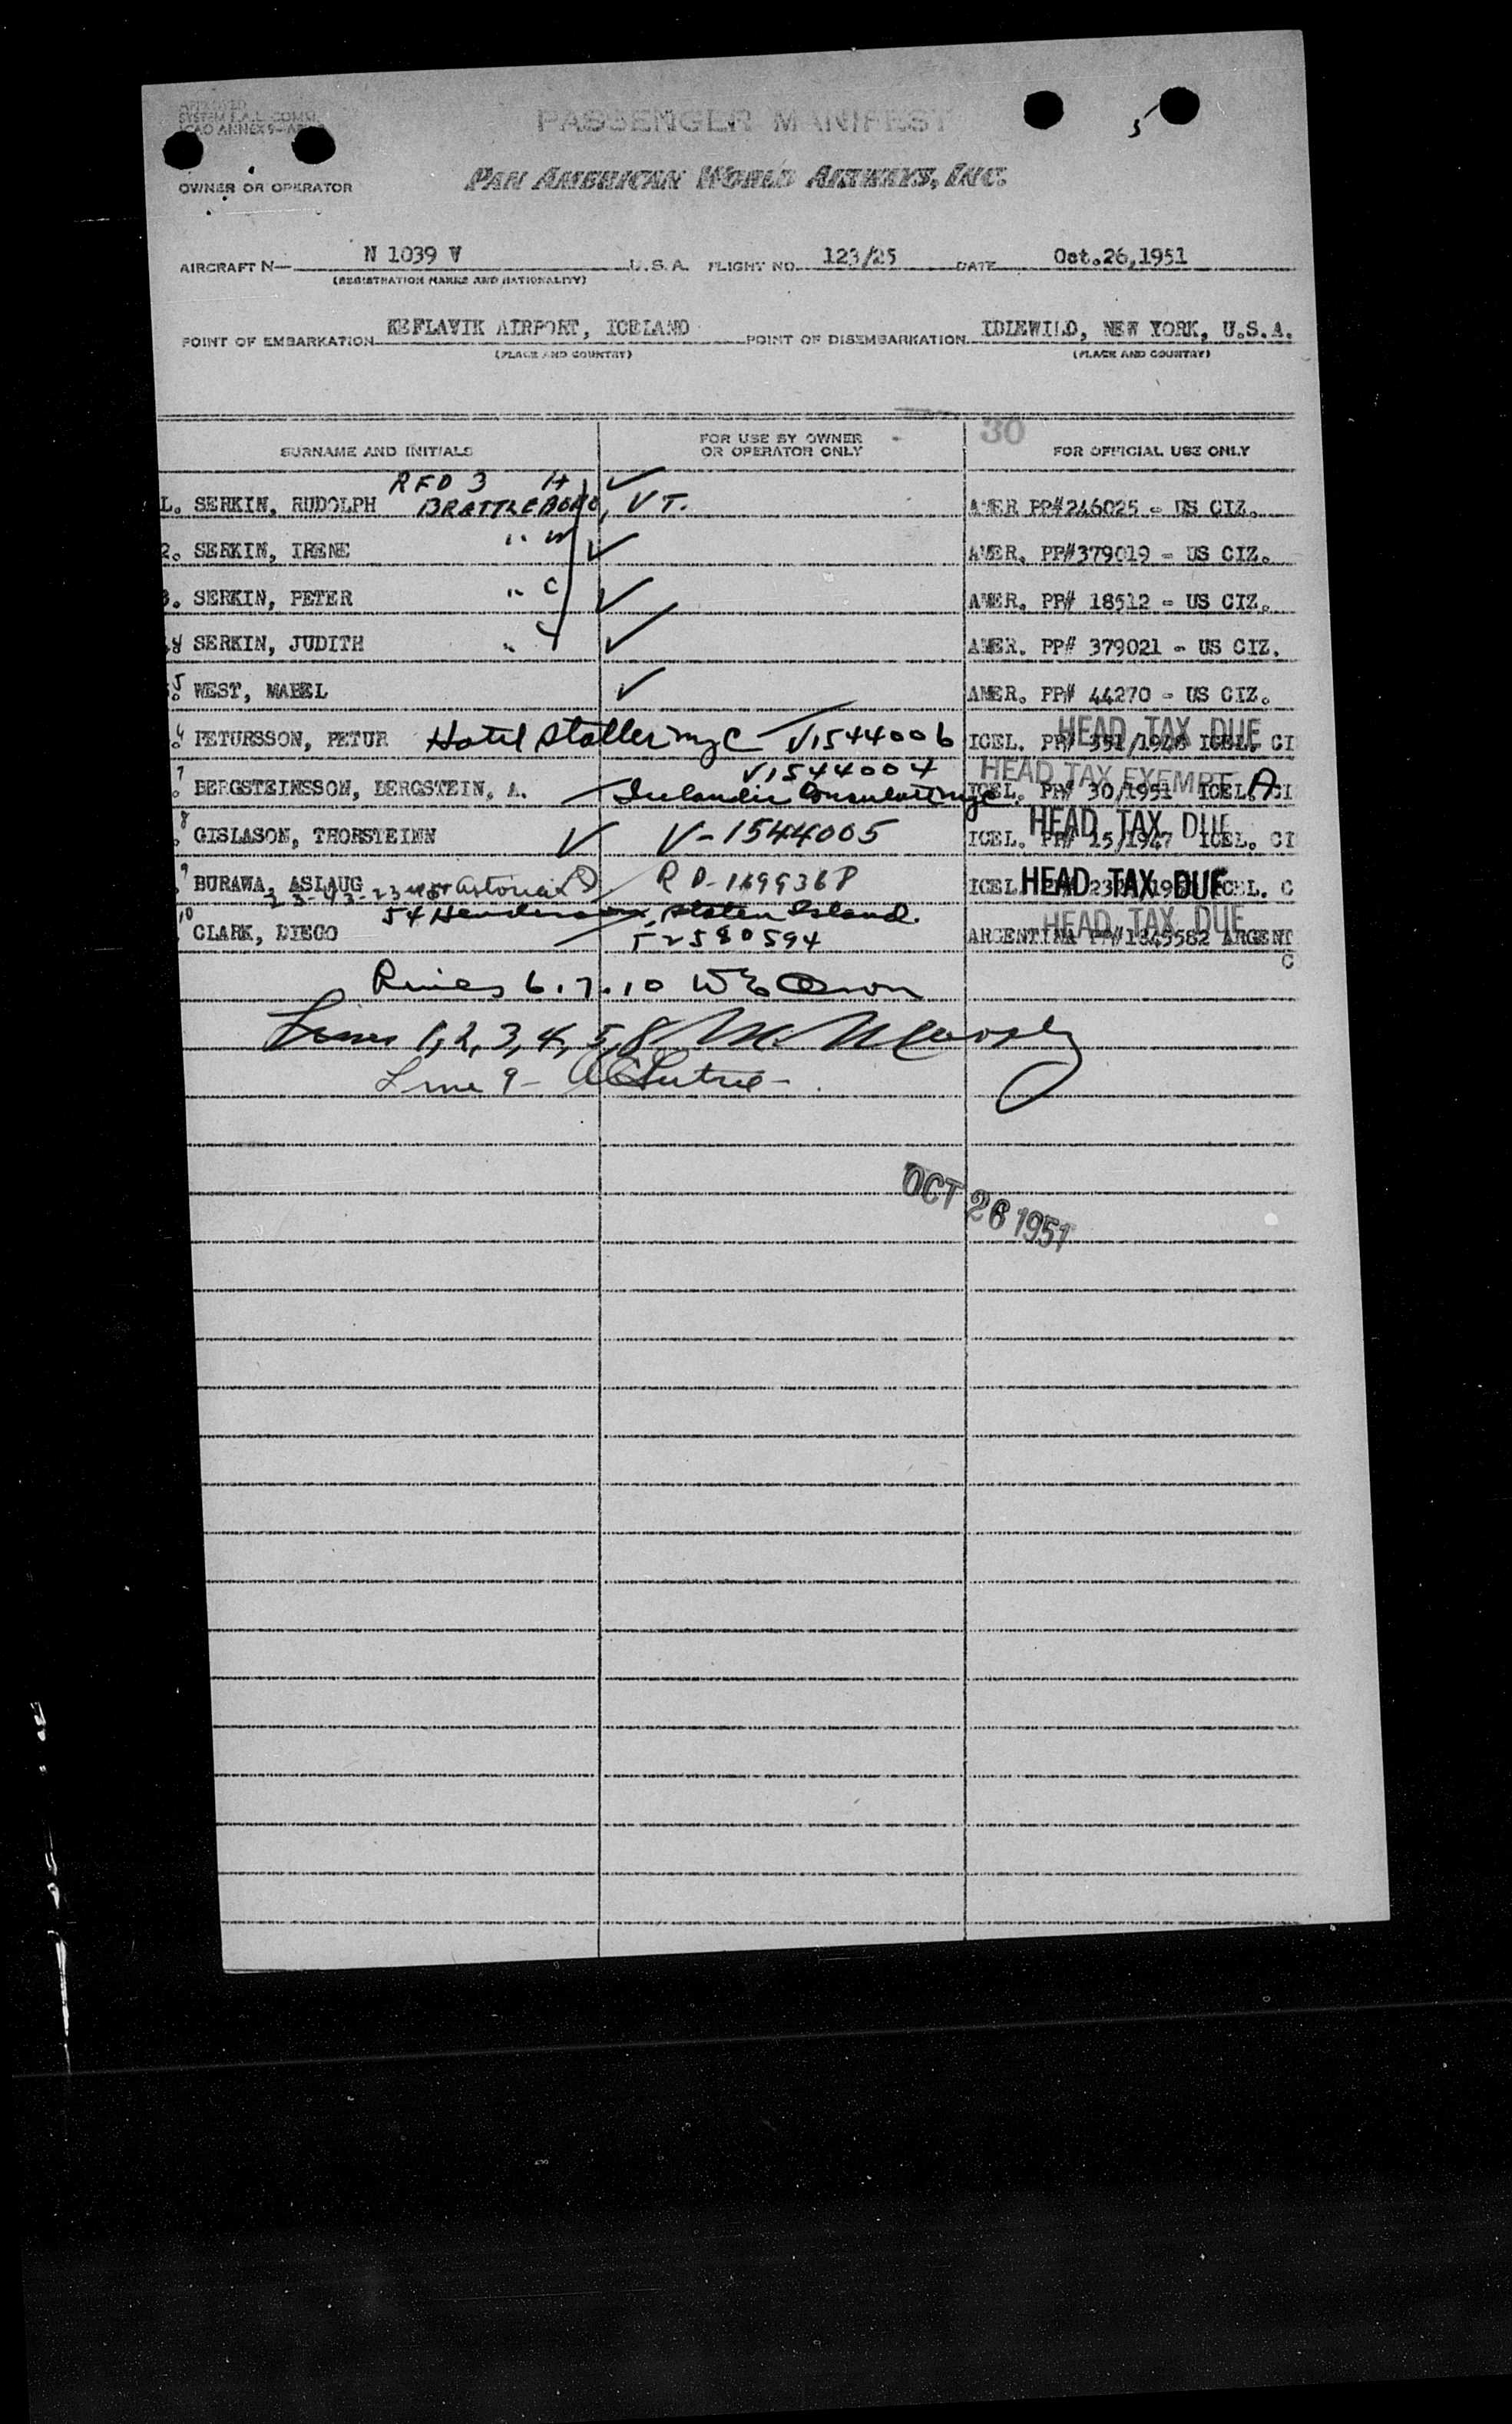 APPROVED
SYSTEM F.A.L. COMM.
ICAO ANNEX 9-
PASSENGER MANIFEST
OWNER OR OPERATOR PAN AMERICAN WORLD AIRWAYS, INC.
AIRCRAFT N— N 1039 V U.S.A. FLIGHT NO. 123/25 DATE Oct.26,1951
(REGISTRATION MARKS AND NATIONALITY)
POINT OF EMBARKATION KEFLAVIK AIRPORT, ICELAND POINT OF DISEMBARKATION IDLEWILD, NEW YORK, U.S.A.
(PLACE AND COUNTRY) (PLACE AND COUNTRY)
30
SURNAME AND INITIALS FOR USE BY OWNER OR OPERATOR ONLY FOR OFFICIAL USE ONLY
RFD 3 H
1. SERKIN, RUDOLPH BRATTLEBORO, VT. AMER PP#246025 - US CIZ.
2. SERKIN, IRENE " W AMER. PP#379019 - US CIZ.
3. SERKIN, PETER " C AMER. PP# 18512 - US CIZ.
4 SERKIN, JUDITH " AMER. PP# 379021 - US CIZ.
5. WEST, MABEL AMER. PP# 44270 - US CIZ.
HEAD TAX DUE
6. PETURSSON, PETUR Hotel Statler NYC V1544006 ICEL. PP# 351/1948 ICEL. CI
V1544004 HEAD TAX EXEMPT A
7. BERGSTEINSSON, BERGSTEIN, A. Icelandic Consulate NYC ICEL. PP# 30/1951 ICEL. CI
HEAD TAX DUE
8. GISLASON, THORSTEINN V-1544005 ICEL. PP# 15/1947 ICEL. CI
9. BURAWA, ASLAUG RP-1699368 ICEL. HEAD TAX DUE ICEL. C
23-43-23 St Astoria LI
54 Henderson, Staten Island. HEAD TAX DUE
10. CLARK, DIEGO 52580594 ARGENTINA PP#1845582 ARGENT
C
Lines 6.7.10
Lines 1, 2, 3, 4, 5, 8
Line 9 -
OCT 26 1951